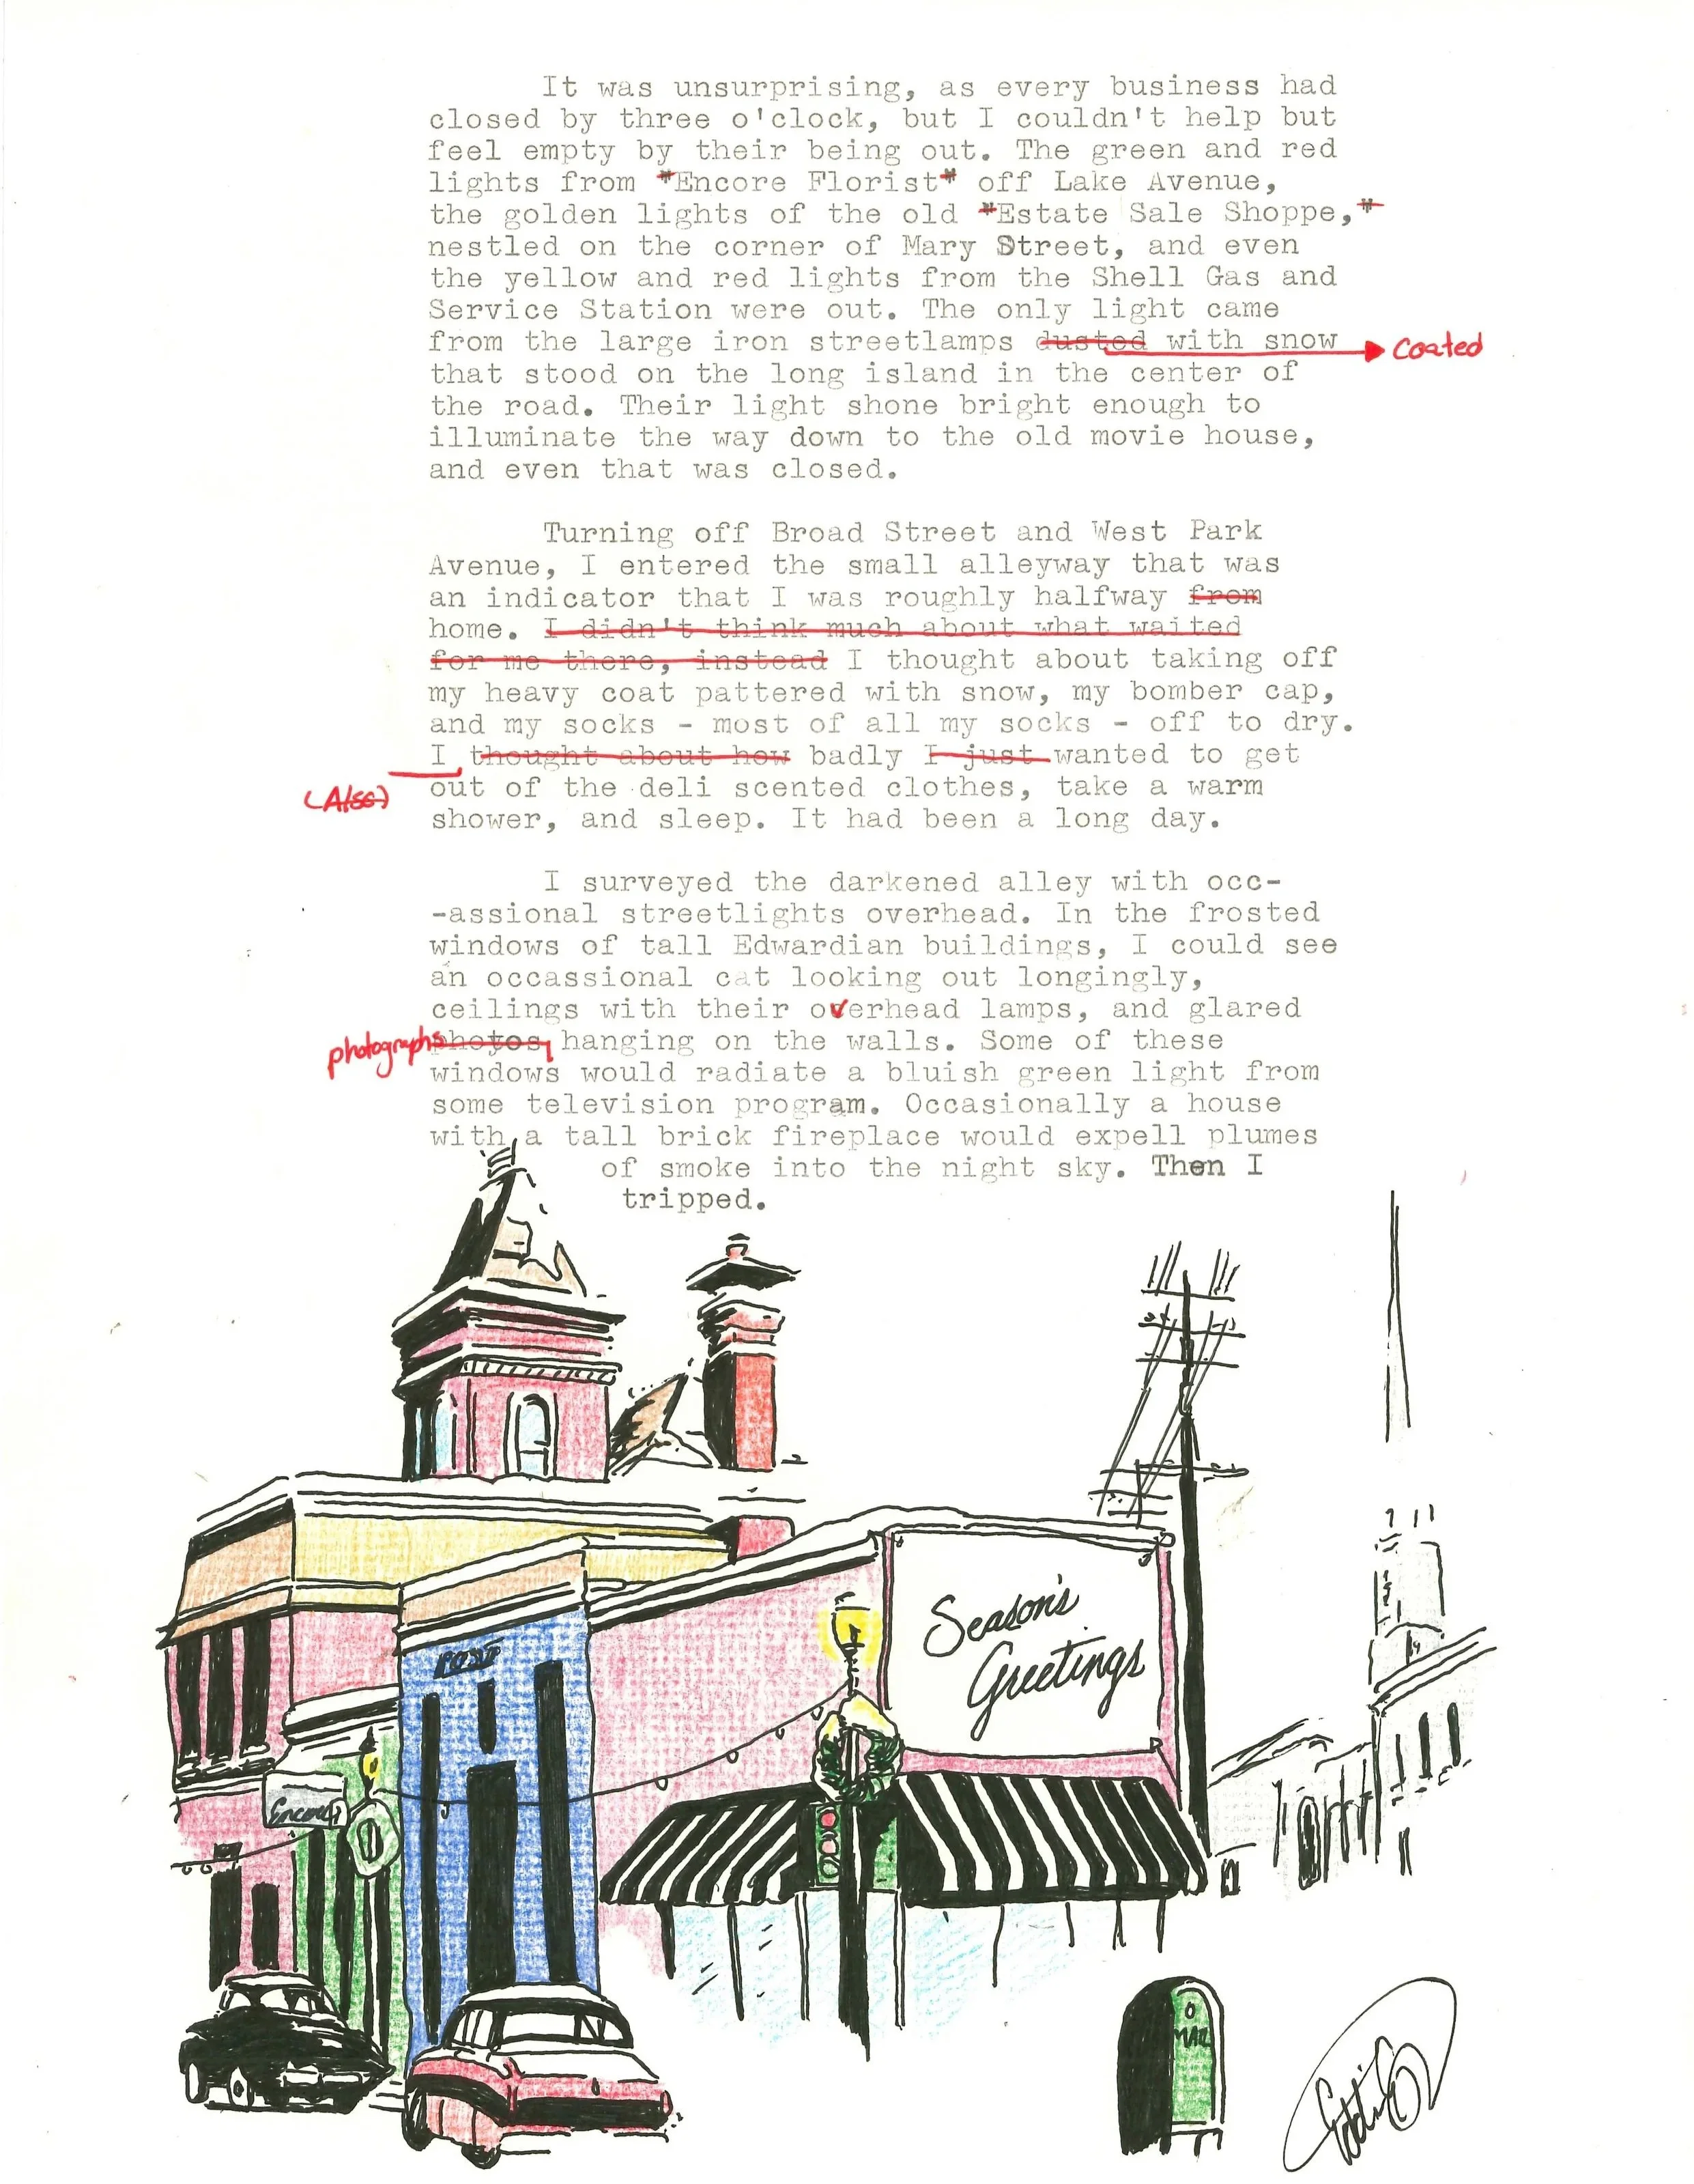 It was unsurprising, as every business had
closed by three o'clock, but I couldn't help but
feel empty by their being out. The green and red
lights from "Encore Florist" off Lake Avenue,
the golden lights of the old "Estate Sale Shoppe,"
nestled on the corner of Mary Street, and even
the yellow and red lights from the Shell Gas and
Service Station were out. The only light came
from the large iron streetlamps dusted with snow
coated
that stood on the long island in the center of
the road. Their light shone bright enough to
illuminate the way down to the old movie house,
and even that was closed.
Turning off Broad Street and West Park
Avenue, I entered the small alleyway that was
an indicator that I was roughly halfway from
home. I didn't think much about what waited
for me there, instead I thought about taking off
my heavy coat pattered with snow, my bomber cap,
and my socks - most of all my socks - off to dry.
I thought about how badly I just wanted to get
(Also)
out of the deli scented clothes, take a warm
shower, and sleep. It had been a long day.
I surveyed the darkened alley with occ-
-assional streetlights overhead. In the frosted
windows of tall Edwardian buildings, I could see
an occassional cat looking out longingly,
ceilings with their overhead lamps, and glared
photographs
photos, hanging on the walls. Some of these
windows would radiate a bluish green light from
some television program. Occasionally a house
with a tall brick fireplace would expell plumes
of smoke into the night sky. Then I
tripped.
Season's
Greetings
POST
Encore
MAIL